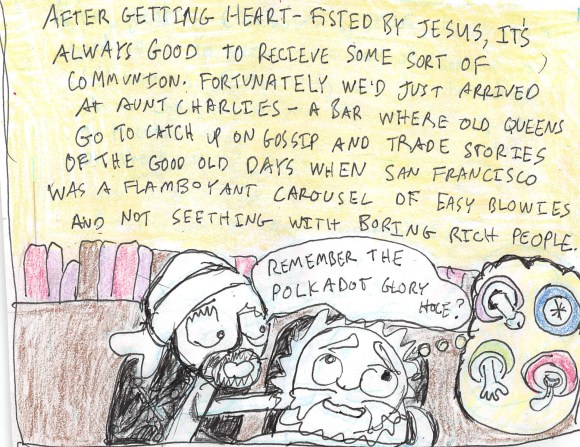 AFTER GETTING HEART-FISTED BY JESUS, IT'S
ALWAYS GOOD TO RECIEVE SOME SORT OF
COMMUNION. FORTUNATELY WE'D JUST ARRIVED
AT AUNT CHARLIES - A BAR WHERE OLD QUEENS
GO TO CATCH UP ON GOSSIP AND TRADE STORIES
OF THE GOOD OLD DAYS WHEN SAN FRANCISCO
WAS A FLAMBOYANT CAROUSEL OF EASY BLOWIES
AND NOT SEETHING WITH BORING RICH PEOPLE.
REMEMBER THE
POLKADOT GLORY
HOLE?